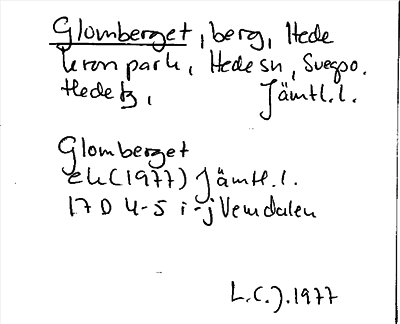 Glomberget, berg, Hede
kronpark, Hede sn, Svegso.
Hede tg, Jämtl.l.
Glomberget
ek (1977) Jämtl.l.
17D 4-5 i-j Vemdalen
L.C.J. 1977